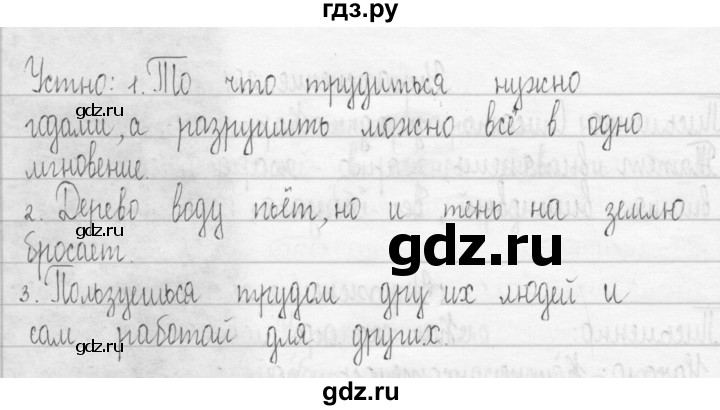 гдз.ру
Устно: 1. То что трудиться нужно
gdz.ru
годами, а разрушить можно всё в одно
мгновение.
gdz.ru
2. Дерево воду пьёт, но и тень на землю
бросает.
gdz.ru
3. Пользуешься трудом других людей и
сам работай для других
gdz.ru
gdz.ru
gdz.ru